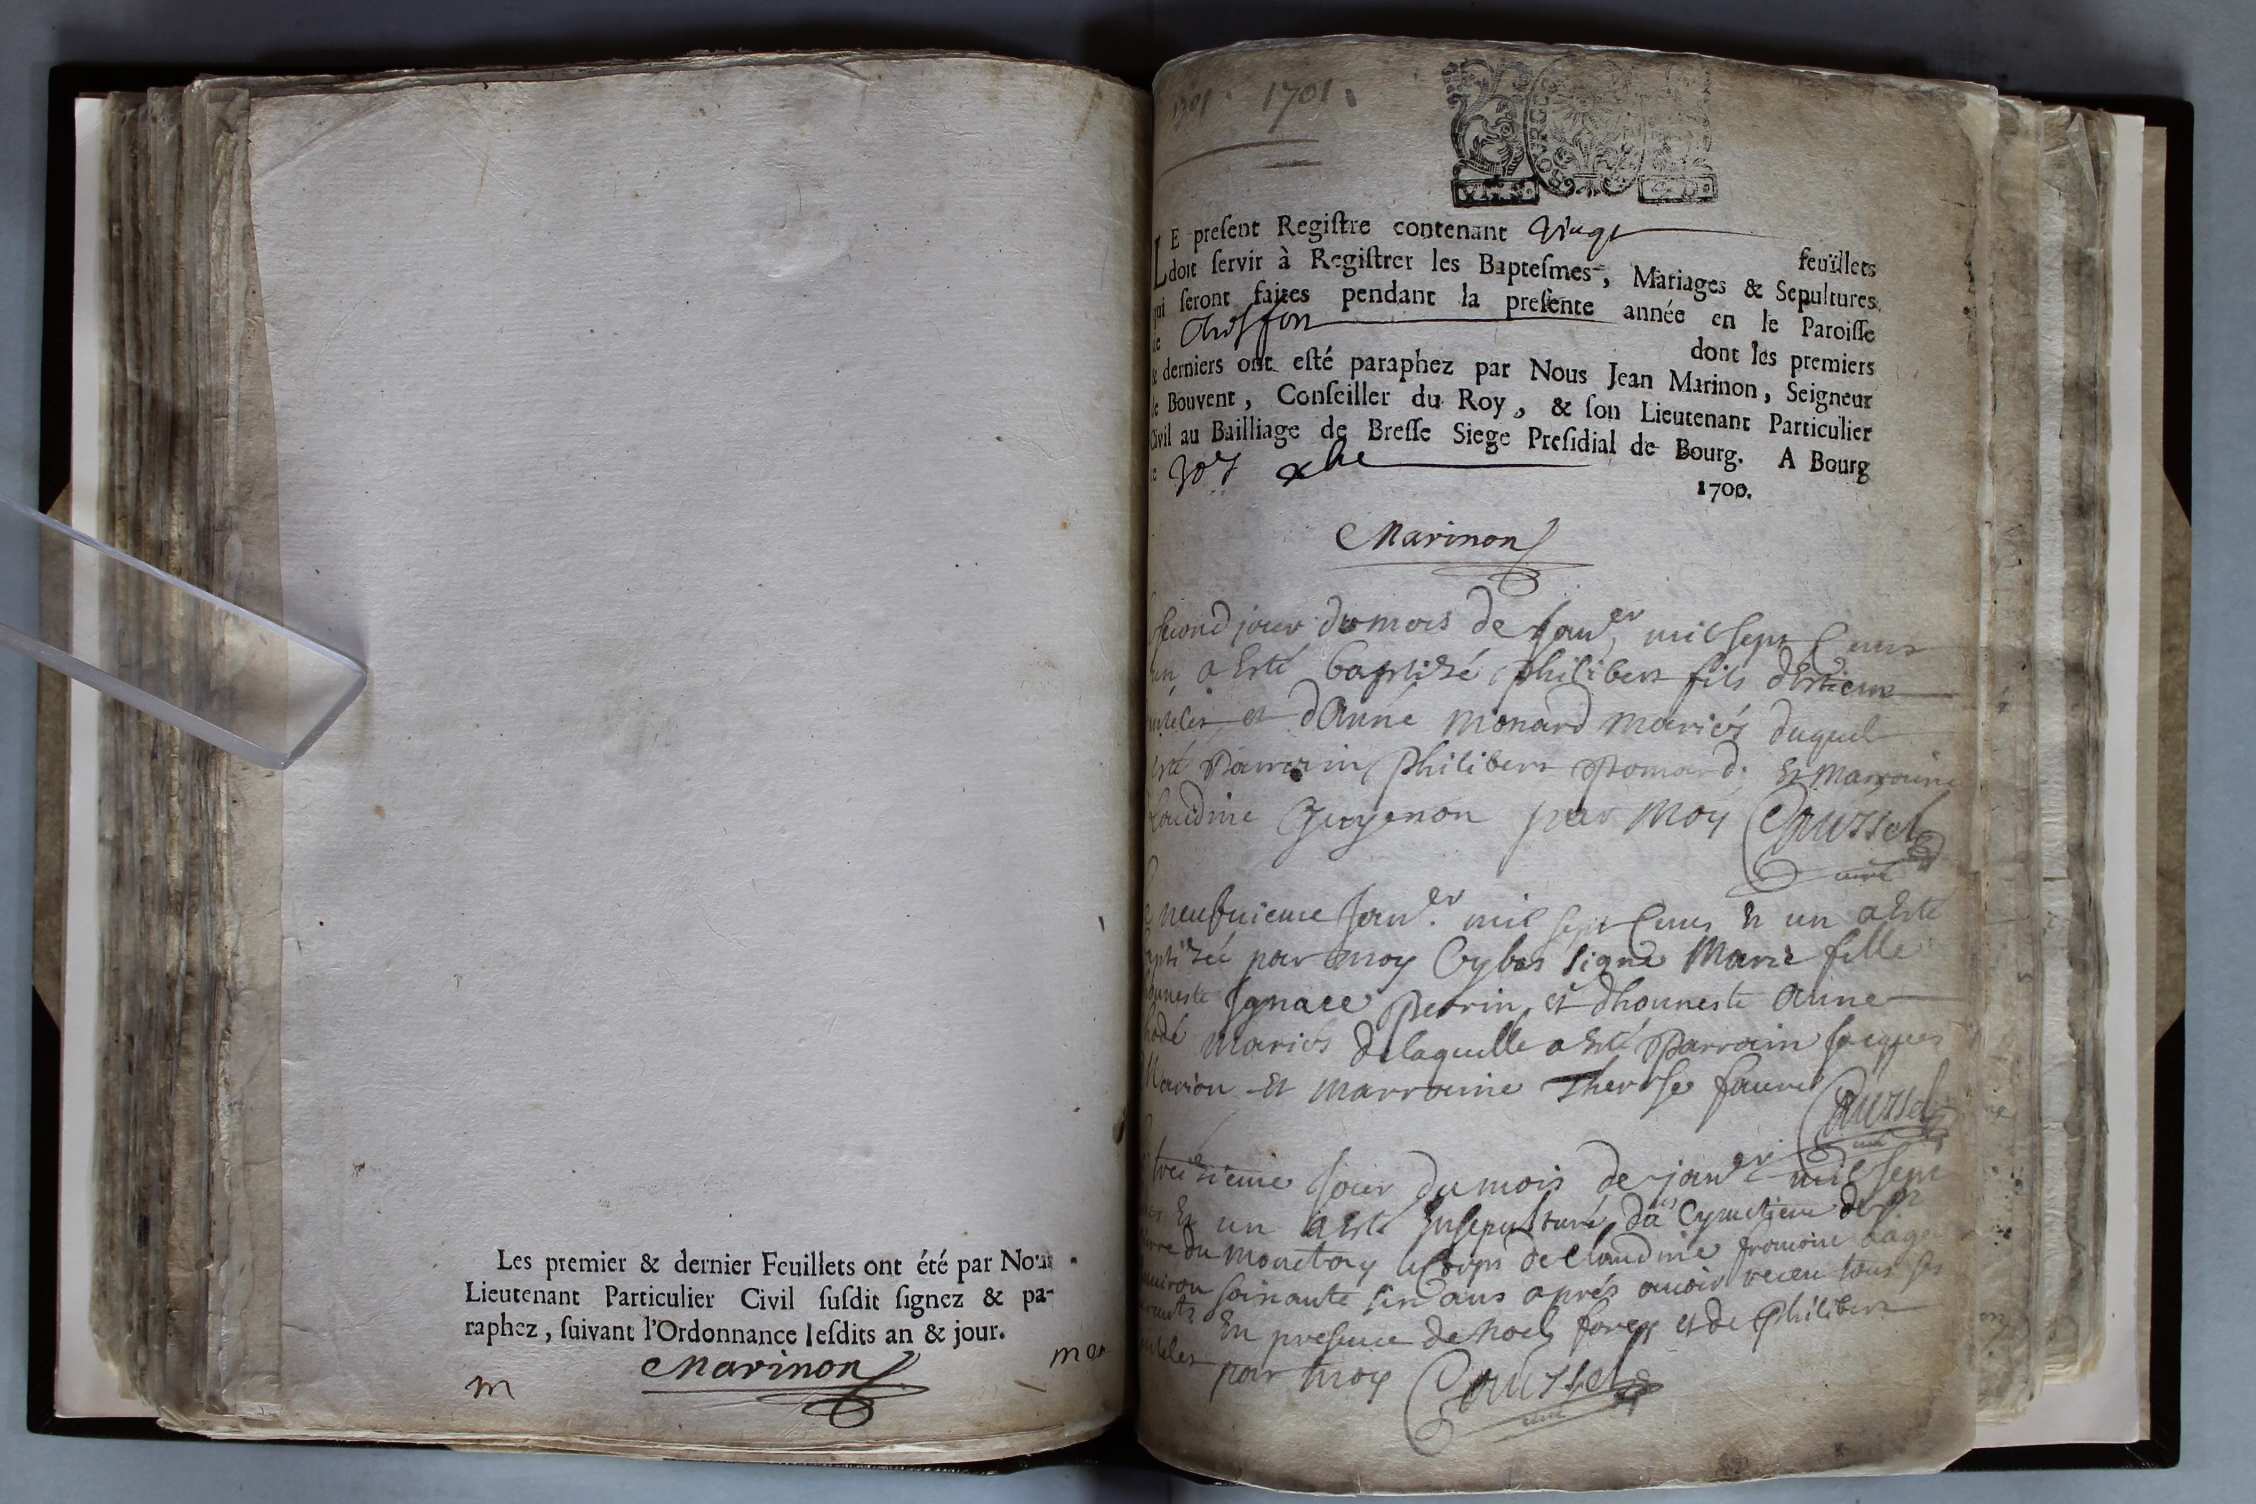 Les premier & dernier Feuillets ont été par Nous
Lieutenant Particulier Civil susdit signez & pa-
raphez, suivant l'Ordonnance lesdits an & jour.
Marinon
m
1701. 1701.
LE present Registre contenant vingt feuillets
doit servir à Registrer les Baptesmes, Mariages & Sepultures
qui seront faites pendant la presente année en le Paroisse
de dont les premiers
& derniers ont esté paraphez par Nous Jean Marinon, Seigneur
de Bouvent, Conseiller du Roy, & son Lieutenant Particulier
Civil au Bailliage de Bresse Siege Presidial de Bourg. A Bourg
le 30e xbre 1700.
Marinon
second jour du mois de Janer mil sept Cens
un a esté baptizé philibert fils d'Estienne
et d'Anne monard mariés duquel
esté parrain philibert pomard Et marraine
Claudine Guyenon par moy Coussel
curé
neufvieme Janer mil sept Cens et un a esté
baptizée par moy Cybas signé Marie fille
honneste Ignace perrin et d'honneste anne
mariés de laquelle a esté parrain Jacques
Marion Et marraine Therese faure
Coussel
treizieme Jour du mois de janer mil sept
Et un a esté Insepulturé dans Cymetiere de St
pierre du monetay le Corps de Claudine fromoire aagée
environ soixante six ans aprés avoir receu tous ses
En presence de noel forex et de philibert
par moy Coussel